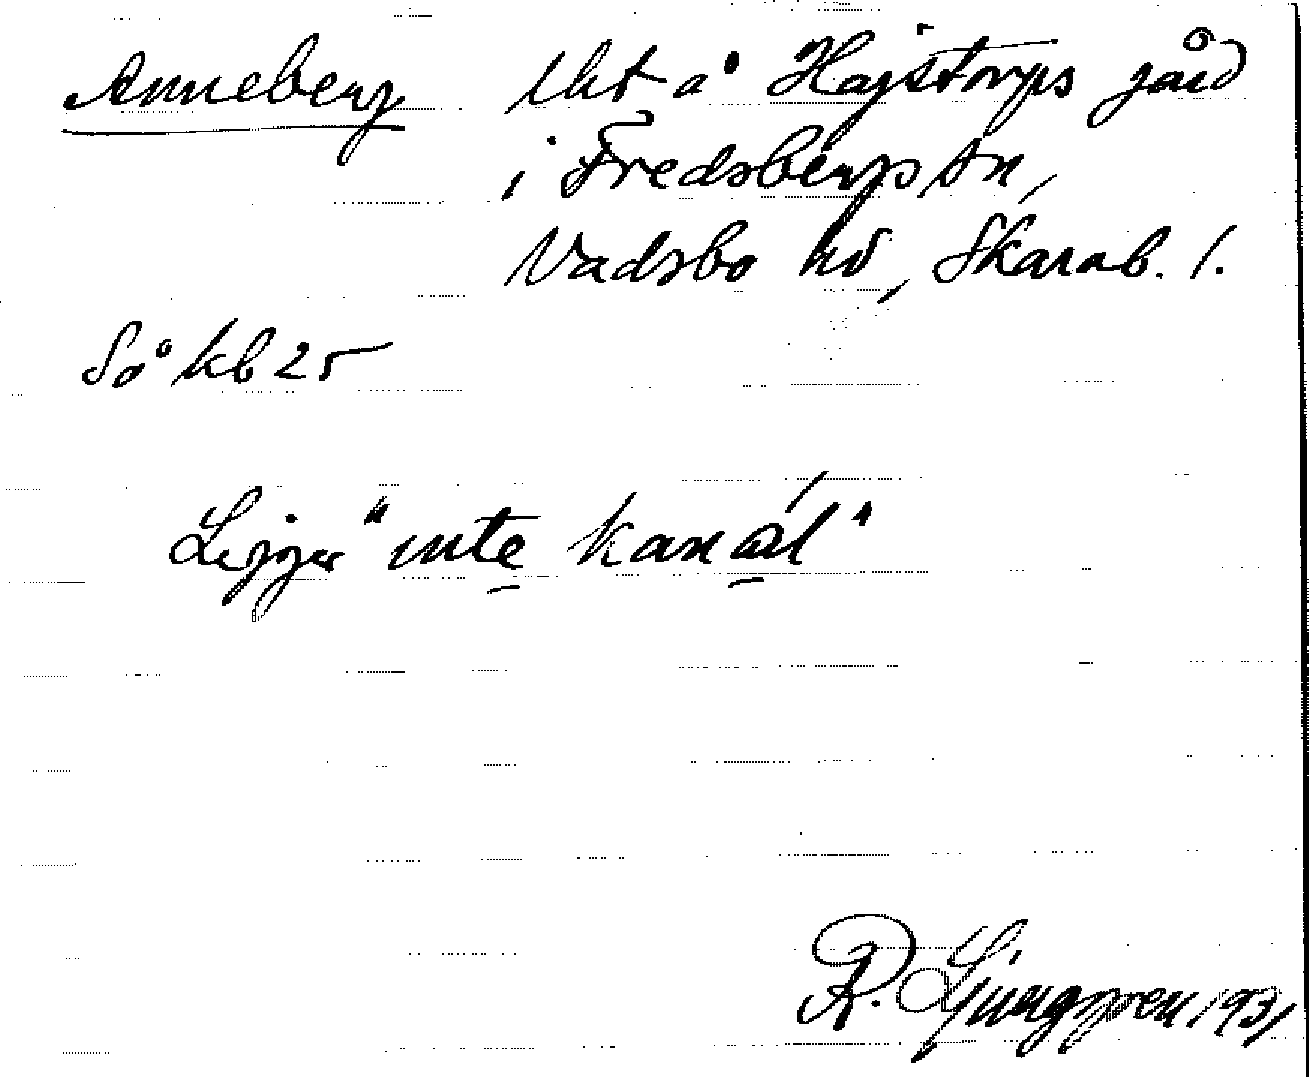 Anneberg lht å Hajstorps gård
i Fredsbergs sn,
Vadsbo hd, Skarab. l.
Så kb 25
Ligger "inte kanal"
R. Ljunggren 1931